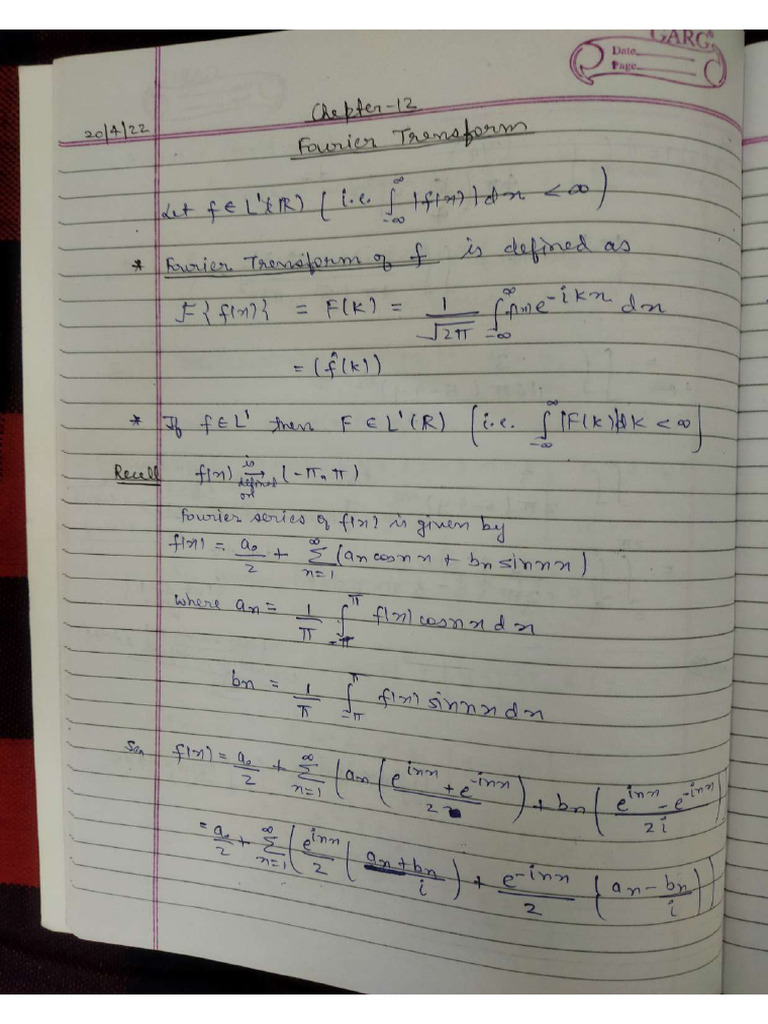 GARG
Date
Page
Chepter-12
20/4/22
Fourier Trensform
Let f ∈ L'(R) ( i.e. ∫_{-∞}^{∞} |f(x)| dx < ∞ )
* Fourier Trensform of f is defined as
F{f(x)} = F(k) = 1/√2π ∫_{-∞}^{∞} f(x) e^{-ikx} dx
= (f̂(k))
* If f ∈ L' then F ∈ L'(R) [ i.e. ∫_{-∞}^{∞} |F(k)| dk < ∞ ]
Recall f(x) is defined on → (-π, π)
Fourier series of f(x) is given by
f(x) = a₀/2 + Σ_{n=1}^{∞} (an cos nx + bn sin nx)
where an = 1/π ∫_{-π}^{π} f(x) cos nx dx
bn = 1/π ∫_{-π}^{π} f(x) sin nx dx
f(x) = a₀/2 + Σ_{n=1}^{∞} ( an ( (e^{inx} + e^{-inx})/2 ) + bn ( (e^{inx} - e^{-inx})/2i )
= a₀/2 + Σ_{n=1}^{∞} ( e^{inx}/2 ( an + bn/i ) + e^{-inx}/2 ( an - bn/i ) )